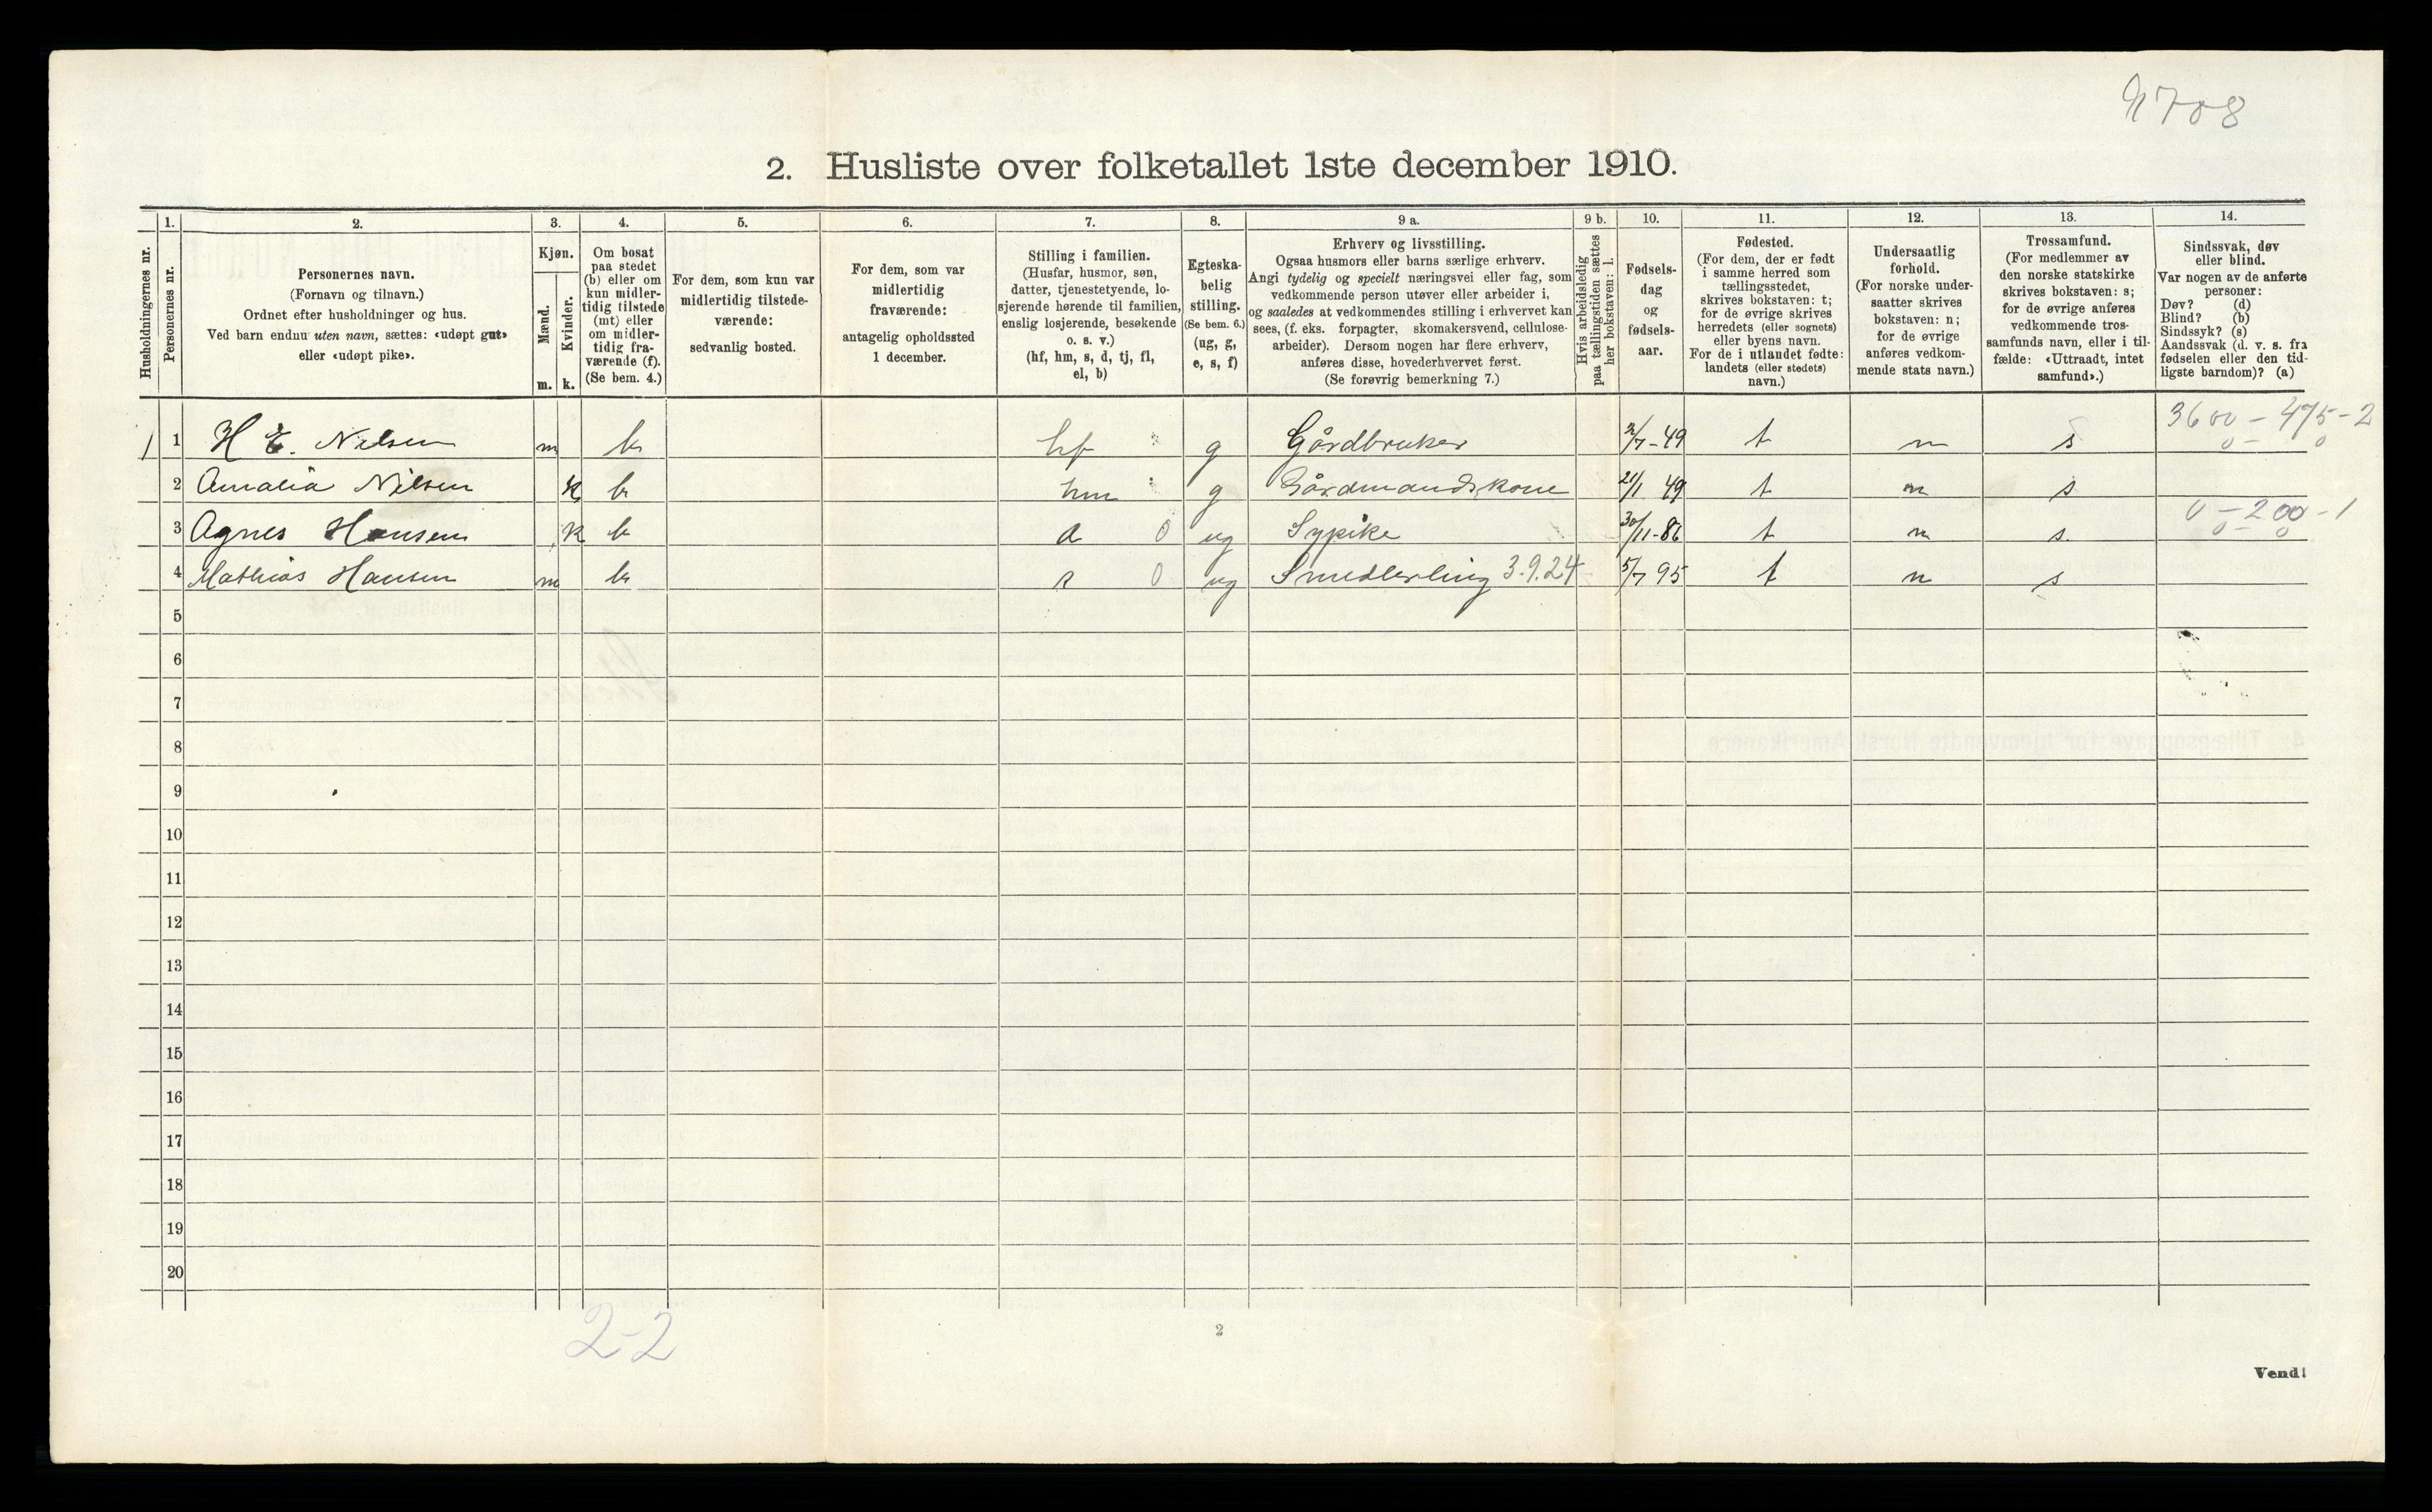 9708
2. Husliste over folketallet 1ste december 1910.
Husholdningernes nr.
1.
Personernes nr.
2.
Personernes navn.
(Fornavn og tilnavn.)
Ordnet efter husholdninger og hus.
Ved barn endnu uten navn, sættes: «udøpt gut»
eller «udøpt pike».
3.
Kjøn.
Mænd.
m.
Kvinder.
k.
4.
Om bosat
paa stedet
(b) eller om
kun midler-
tidig tilstede
(mt) eller
om midler-
tidig fra-
værende (f).
(Se bem. 4.)
5.
For dem, som kun var
midlertidig tilstede-
værende:
sedvanlig bosted.
6.
For dem, som var
midlertidig
fraværende:
antagelig opholdssted
1 december.
7.
Stilling i familien.
(Husfar, husmor, søn,
datter, tjenestetyende, lo-
sjerende hørende til familien,
enslig losjerende, besøkende
o. s. v.)
(hf, hm, s, d, tj, fl,
el, b)
8.
Egteska-
belig
stilling.
(Se bem. 6.)
(ug, g,
e, s, f)
9 a.
Erhverv og livsstilling.
Ogsaa husmors eller barns særlige erhverv.
Angi tydelig og specielt næringsvei eller fag, som
vedkommende person utøver eller arbeider i,
og saaledes at vedkommendes stilling i erhvervet kan
sees, (f. eks. forpagter, skomakersvend, cellulose-
arbeider). Dersom nogen har flere erhverv,
anføres disse, hovederhvervet først.
(Se forøvrig bemerkning 7.)
9 b.
Hvis arbeidsledig
paa tællingstiden sættes
her bokstaven: l.
10.
Fødsels-
dag
og
fødsels-
aar.
11.
Fødested.
(For dem, der er født
i samme herred som
tællingsstedet,
skrives bokstaven: t;
for de øvrige skrives
herredets (eller sognets)
eller byens navn.
For de i utlandet fødte:
landets (eller stedets)
navn.)
12.
Undersaatlig
forhold.
(For norske under-
saatter skrives
bokstaven: n;
for de øvrige
anføres vedkom-
mende stats navn.)
13.
Trossamfund.
(For medlemmer av
den norske statskirke
skrives bokstaven: s;
for de øvrige anføres
vedkommende tros-
samfunds navn, eller i til-
fælde: «Uttraadt, intet
samfund».)
14.
Sindssvak, døv
eller blind.
Var nogen av de anførte
personer:
Døv? (d)
Blind? (b)
Sindssyk? (s)
Aandssvak (d. v. s. fra
fødselen eller den tid-
ligste barndom)? (a)
3600 - 475 - 2
0 - 0
1 1 H E. Nilsen m b hf g Gårdbruker 2/7-49 t n s
2 Amalia Nilsen k b hm g Gårdmandskone 21/1 49 t n s
0 - 200 - 1
0 - 0
3 Agnes Hansen k b d 0 ug Sypike 30/11-86 t n s.
4 Mathias Hansen m b s 0 ug Smedlerling 3.9.24 5/7 95 t n s
5
6
7
8
9
10
11
12
13
14
15
16
17
18
19
20
2-2
2
Vend!